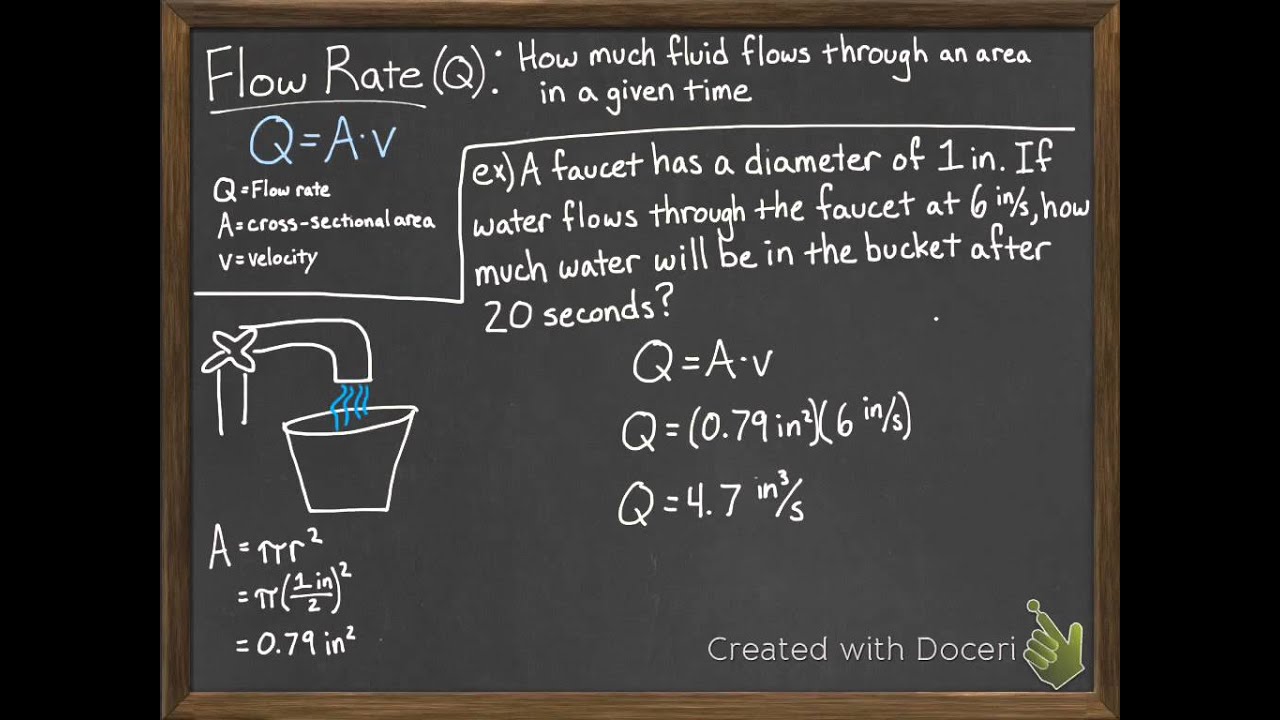 Flow Rate (Q): How much fluid flows through an area
in a given time
Q=A·v
Q=Flow rate
A=cross-sectional area
v=velocity
ex) A faucet has a diameter of 1 in. If
water flows through the faucet at 6 in/s, how
much water will be in the bucket after
20 seconds?
Q=A·v
Q=(0.79 in²)(6 in/s)
Q=4.7 in³/s
A=πr²
=π(1 in/2)²
=0.79 in²
Created with Doceri